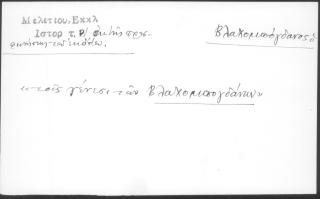 Μελετίου, Εκκλ
Ιστορ τ. Β/ ἐκ τῆς προσ-
Βλαχομπόγδανος ὁ
«τοῖς γένεσι τῶν Βλαχομπογδάνων»